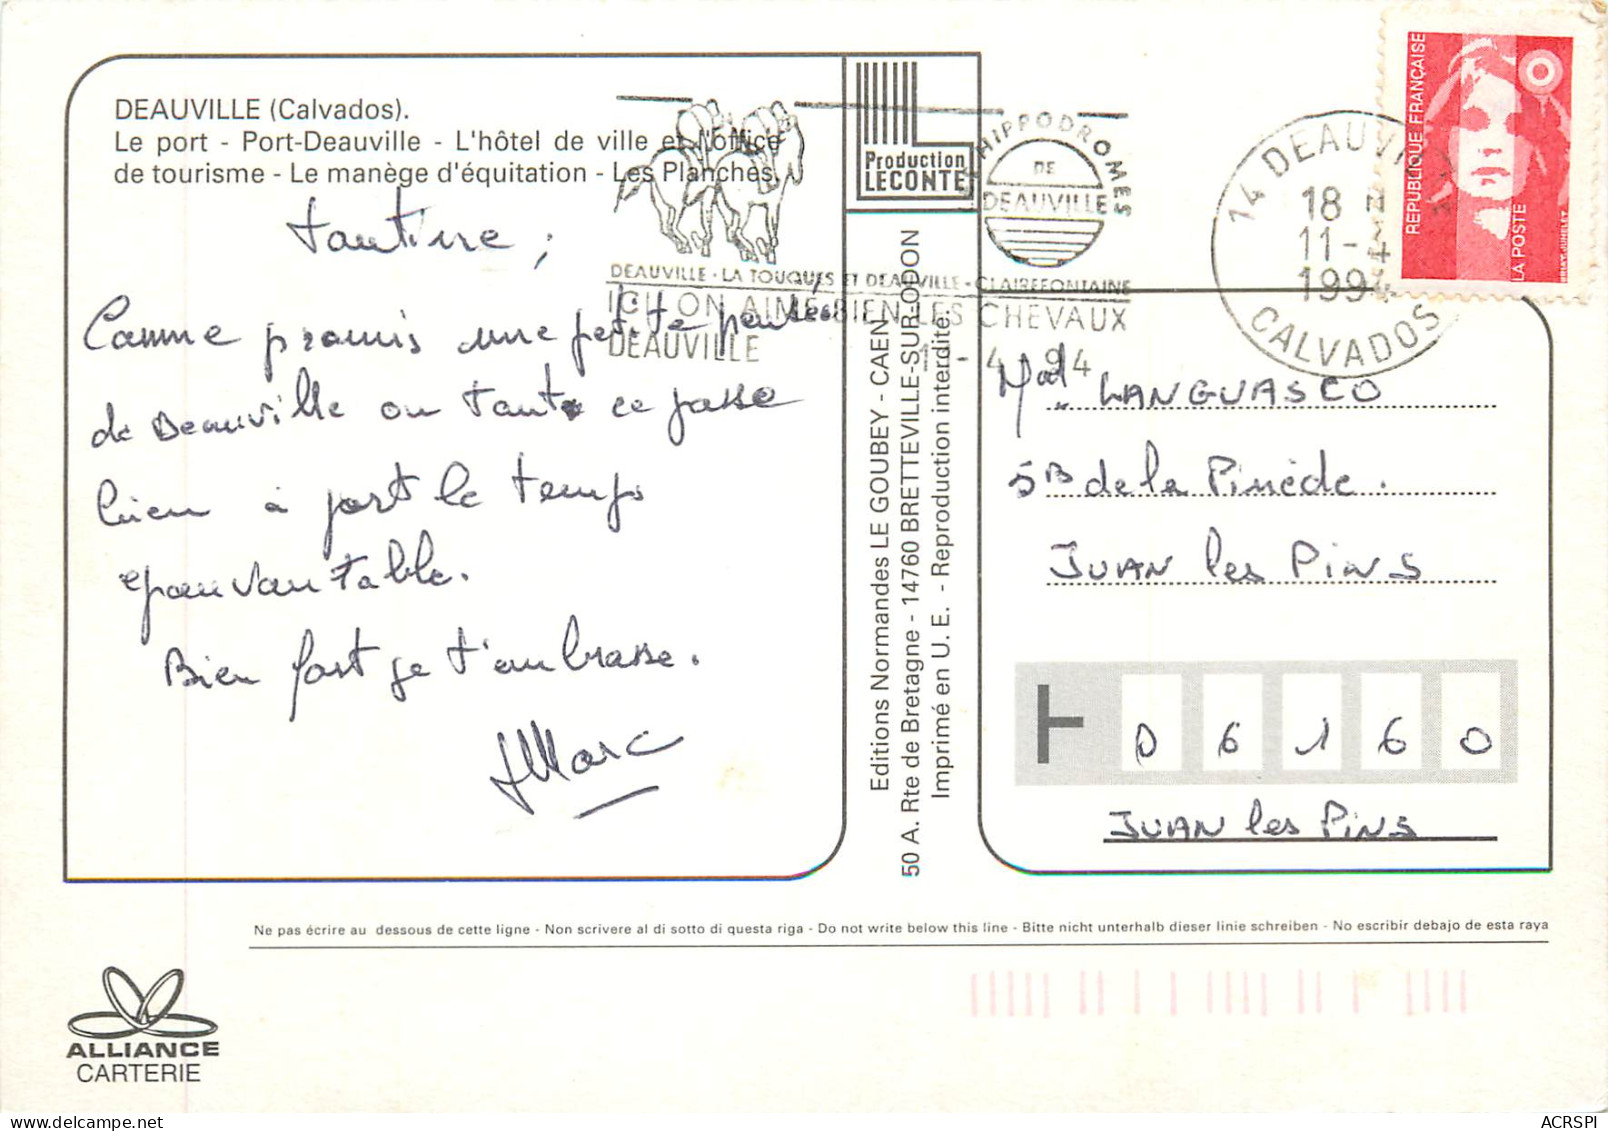 DEAUVILLE (Calvados).
Le port - Port-Deauville - L'hôtel de ville et l'office
de tourisme - Le manège d'équitation - Les Planches.
Production
LECONTE
HIPPODROMES
DE
DEAUVILLE
DEAUVILLE - LA TOUQUES ET DEAUVILLE - CLAIREFONTAINE
ICI, ON AIME BIEN LES CHEVAUX
DEAUVILLE
11-4-94
14 DEAUVILLE
18 H
11-4
1994
CALVADOS
REPUBLIQUE FRANÇAISE
LA POSTE
BRIAT-JUMELET
tantine,
Comme promis une petite pensée
de Deauville ou tout ce passe
bien à part le temps
epouvantable.
Bien fort je t'embrasse.
JMarc
Editions Normandes LE GOUBEY - CAEN
50 A. Rte de Bretagne - 14760 BRETTEVILLE-SUR-ODON
Imprimé en U. E. - Reproduction interdite.
LANGUASCO
5B de la Pinède.
JUAN les PINS
06160
JUAN les PINS
Ne pas écrire au dessous de cette ligne - Non scrivere al di sotto di questa riga - Do not write below this line - Bitte nicht unterhalb dieser linie schreiben - No escribir debajo de esta raya
ALLIANCE
CARTERIE
ACRSPI